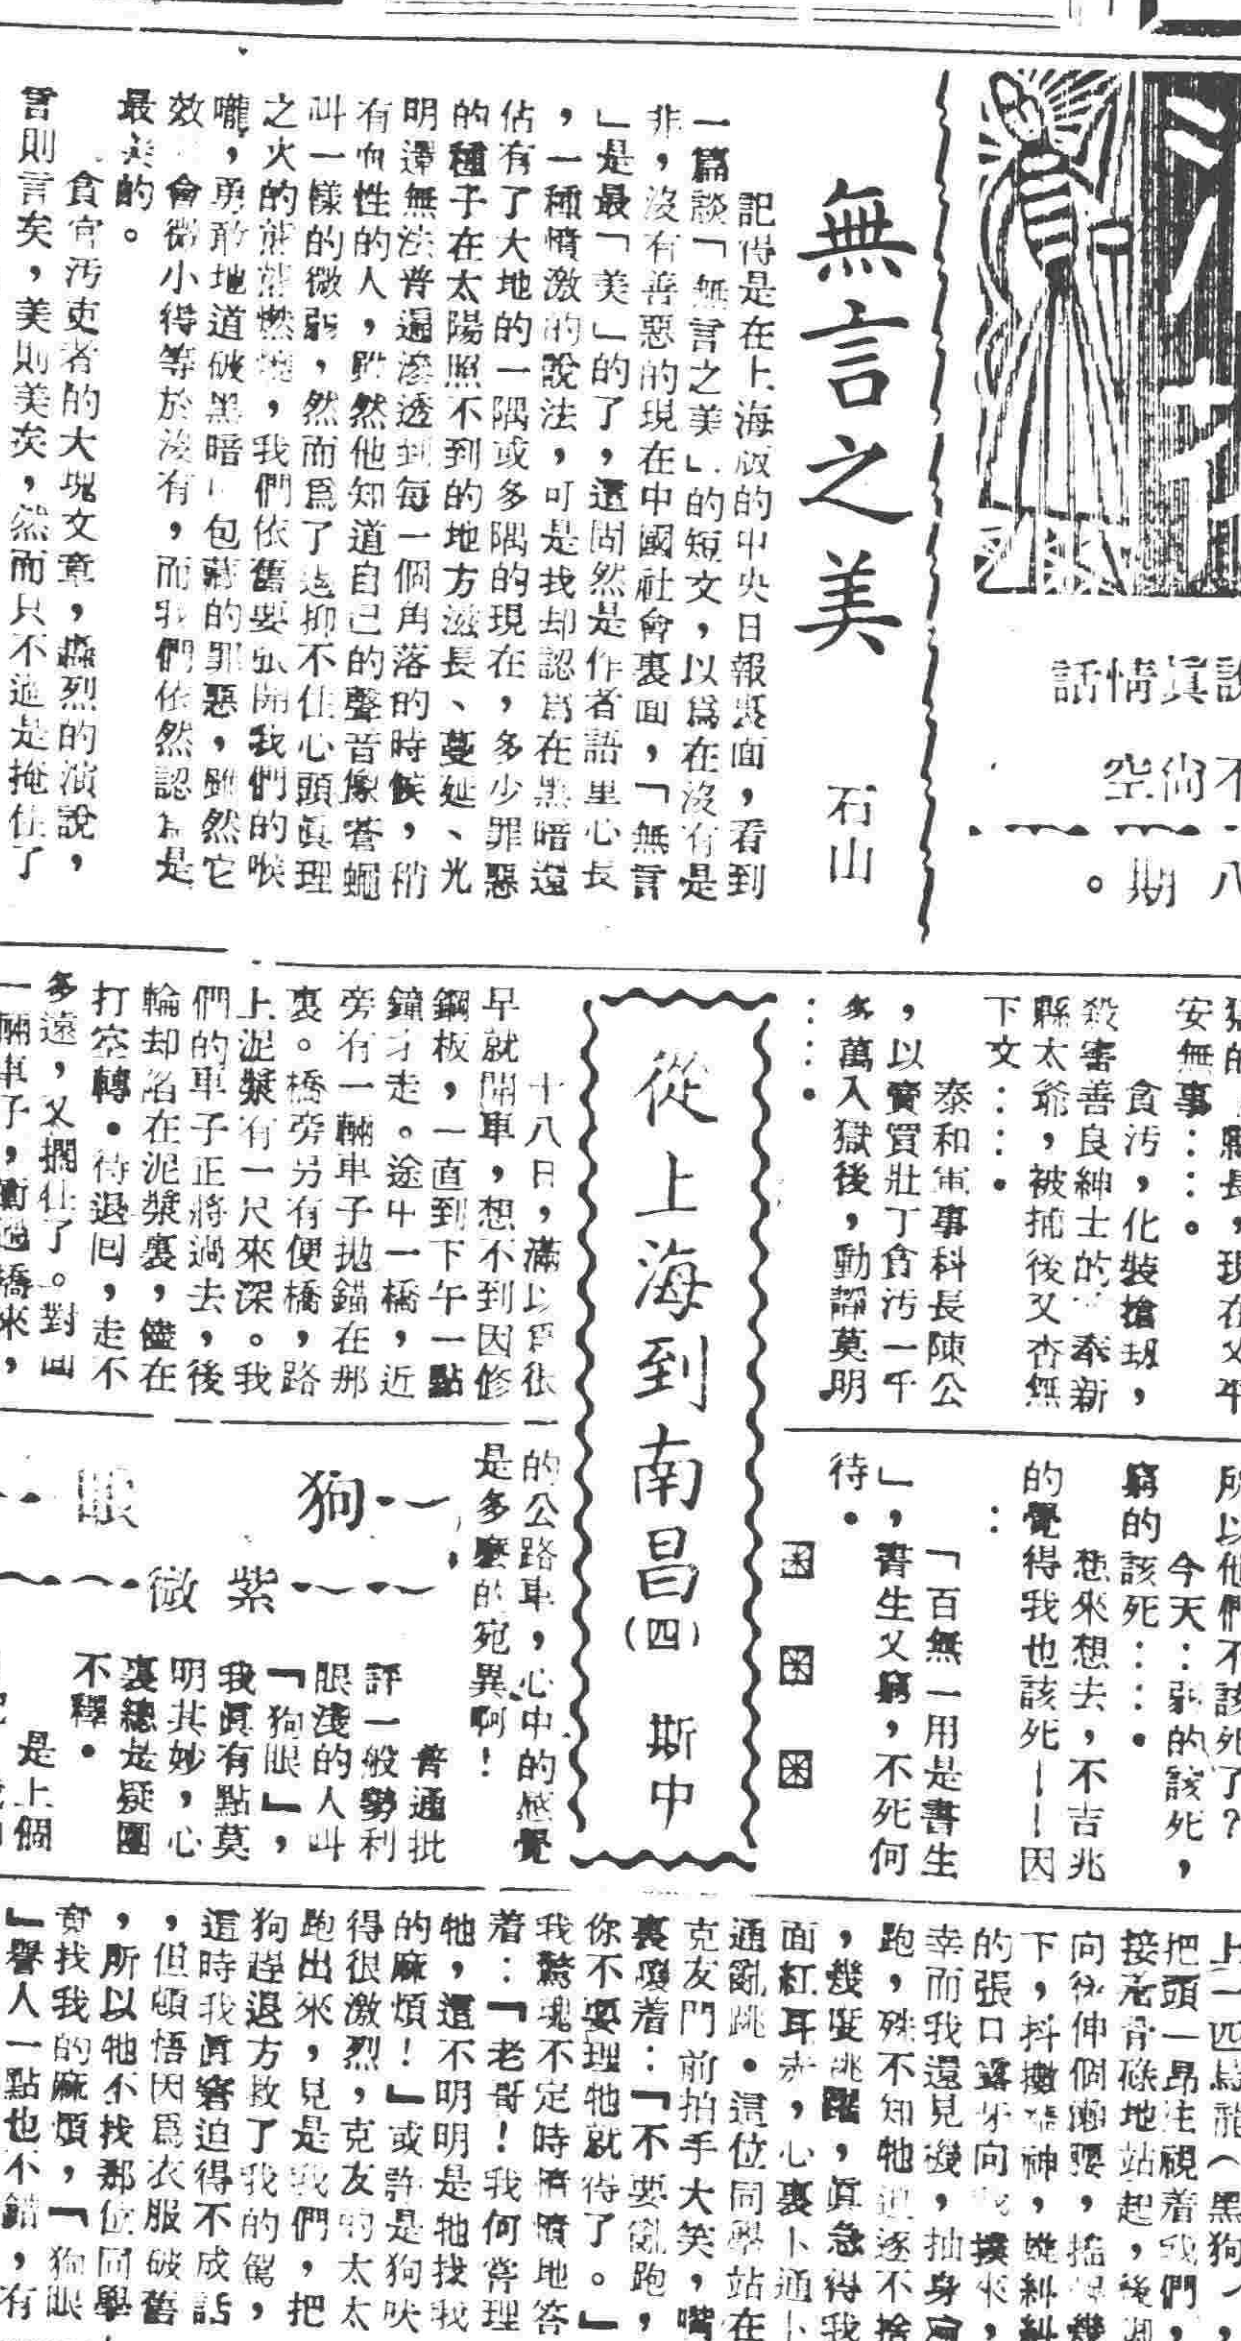 無言之美
石山
記得是在上海版的中央日報裏面，看到
一篇談「無言之美」的短文，以爲在沒有是
非，沒有善惡的現在中國社會裏面，「無言
」是最「美」的了，這固然是作者語里心長
，一種憤激的說法，可是我却認爲在黑暗還
佔有了大地的一隅或多隅的現在，多少罪惡
的種子在太陽照不到的地方滋長、蔓延、光
明還無法普遍滲透到每一個角落的時候，稍
有血性的人，雖然他知道自己的聲音像蒼蠅
叫一樣的微弱，然而爲了遏抑不住心頭眞理
之火的熊熊燃燒，我們依舊要張開我們的喉
嚨，勇敢地道破黑暗 包藏的罪惡，雖然它
效 會微小得等於沒有，而我們依然認爲是
最美的。
貪官汚吏者的大塊文章，轟烈的演說，
言則言矣，美則美矣，然而只不過是掩住了
話情眞說
空尙不
期八
。
縣長，現在又平
安無事：：。
貪汚，化裝搶刧，
殺害善良紳士的 泰新
縣太爺，被捕後又杳無
下文：：．
泰和軍事科長陳公
，以賣買壯丁貪汚一千
多萬入獄後，動靜莫明
：：．
所以他們不該死了？
今天：弱的該死，
窮的該死：：．
想來想去，不吉兆
的覺得我也該死——因
：
「百無一用是書生
」，書生又窮，不死何
待．
從上海到南昌（四）
斯中
十八日，滿以爲很
早就開車，想不到因修
鋼板，一直到下午一點
鐘才走。途中一橋，近
旁有一輛車子拋錨在那
裏。橋旁另有便橋，路
上泥漿有一尺來深。我
們的車子正將過去，後
輪却陷在泥漿裏，儘在
打空轉．待退回，走不
多遠，又擱住了。對面
一輛車子，衝過橋來，
的公路車，心中的感覺
是多麼的宛異啊！
狗眼
紫微
普通批
評一般勢利
眼淺的人叫
『狗眼』，
我眞有點莫
明其妙，心
裏總是疑團
不釋．
是上個
上一匹烏龍（黑狗），
把頭一昂注視着我們，
接着骨碌地站起，後
向後伸個懶腰，搖 幾
下，抖擻精神，雄糾糾
的張口露牙向我撲來，
幸而我還見機，抽身
跑，殊不知牠追逐不捨
，幾度跳躍，眞急得我
面紅耳赤，心裏卜通卜
通亂跳．這位同學站在
克友門前拍手大笑，嘴
裏嚷着：『不要亂跑，
你不要理牠就得了。』
我驚魂不定時憤憤地答
着：『老哥！我何嘗理
牠，還不明明是牠找我
的麻煩！』或許是狗吠
得很激烈，克友的太太
跑出來，見是我們，把
狗趕退方救了我的駕，
這時我眞窘迫得不成話
，但頓悟因爲衣服破舊
，所以牠不找那位同學
竟找我的麻煩，『狗眼
』譽人一點也不錯，有